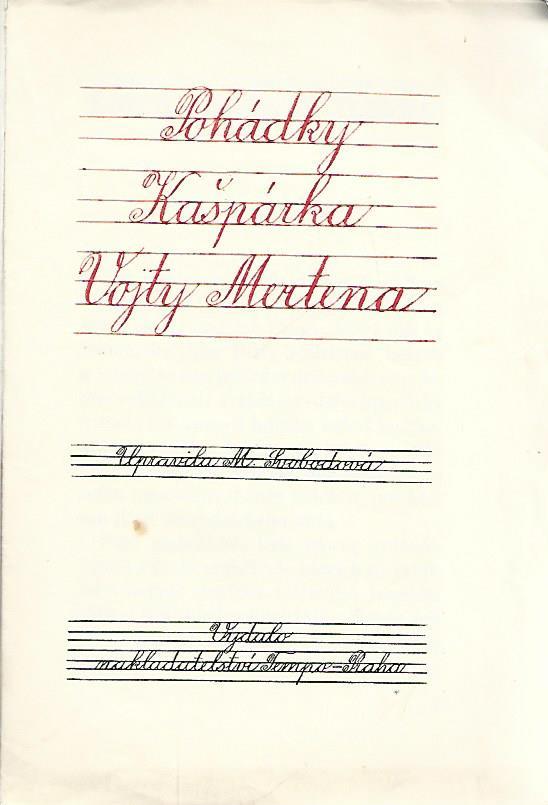 Pohádky
Kašpárka
Vojty Mertena
Upravila M. Svobodová
Vydalo
nakladatelství Tempo-Praha